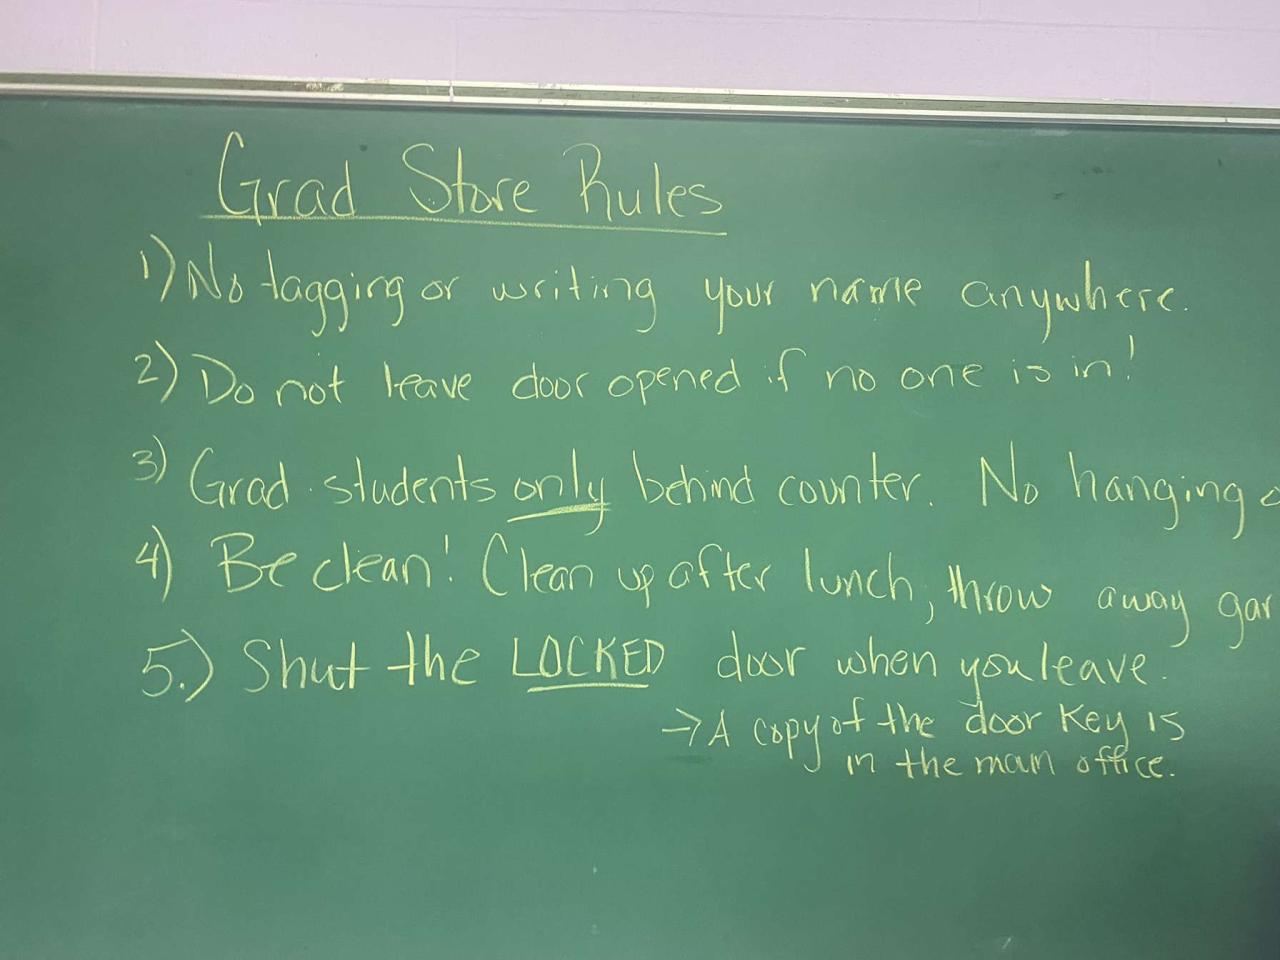 Grad Store Rules
1) No tagging or writing your name anywhere.
2) Do not leave door opened if no one is in!
3) Grad students only behind counter. No hanging
4) Be clean! Clean up after lunch, throw away gar
5.) Shut the LOCKED door when you leave.
→ A copy of the door key is
in the main office.